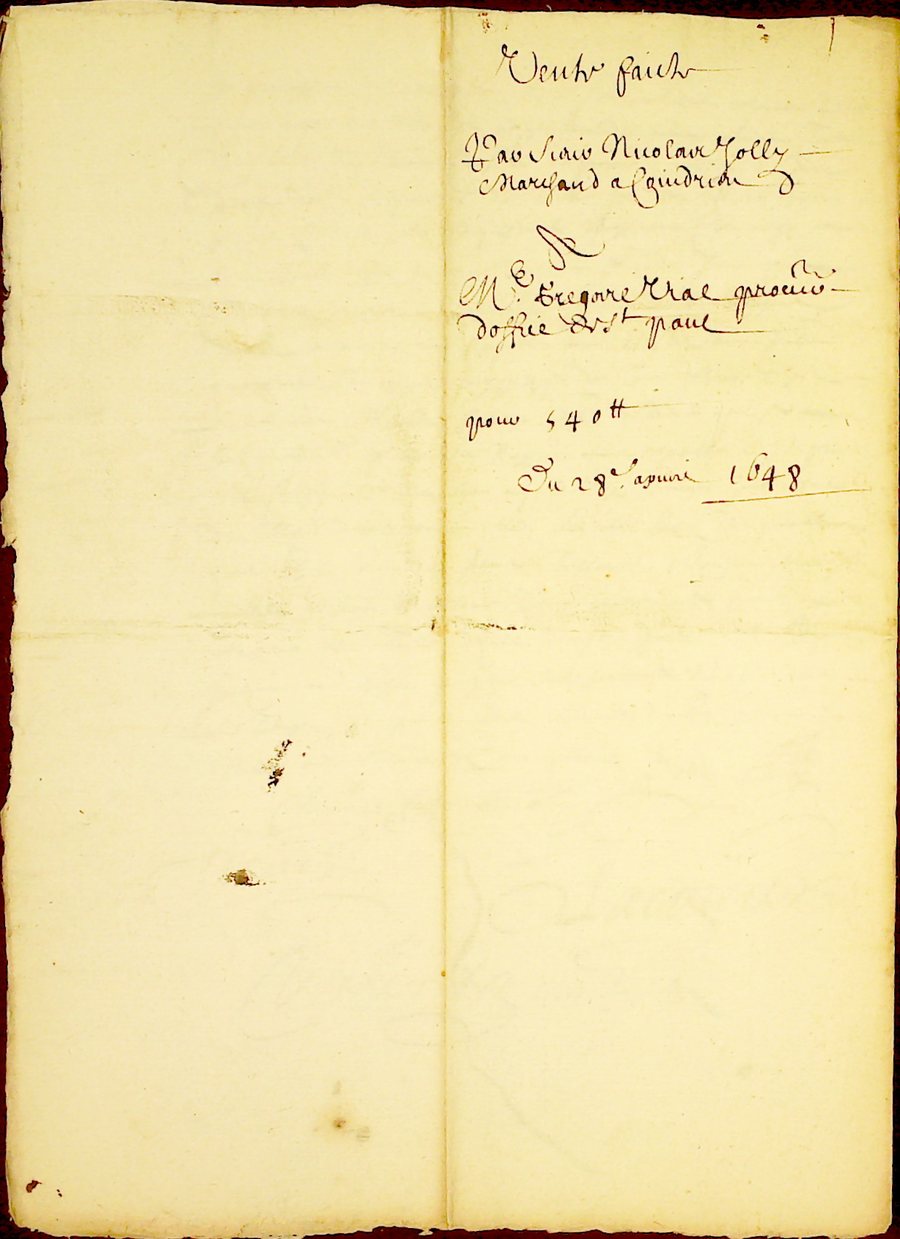 Vente faicte
Par sieur Nicolas Jolly
Marchand a Coindrieu
A
Me Gregoire Vial procureur
doffice de St paul
pour 540 tt
Du 28e Janvier 1648